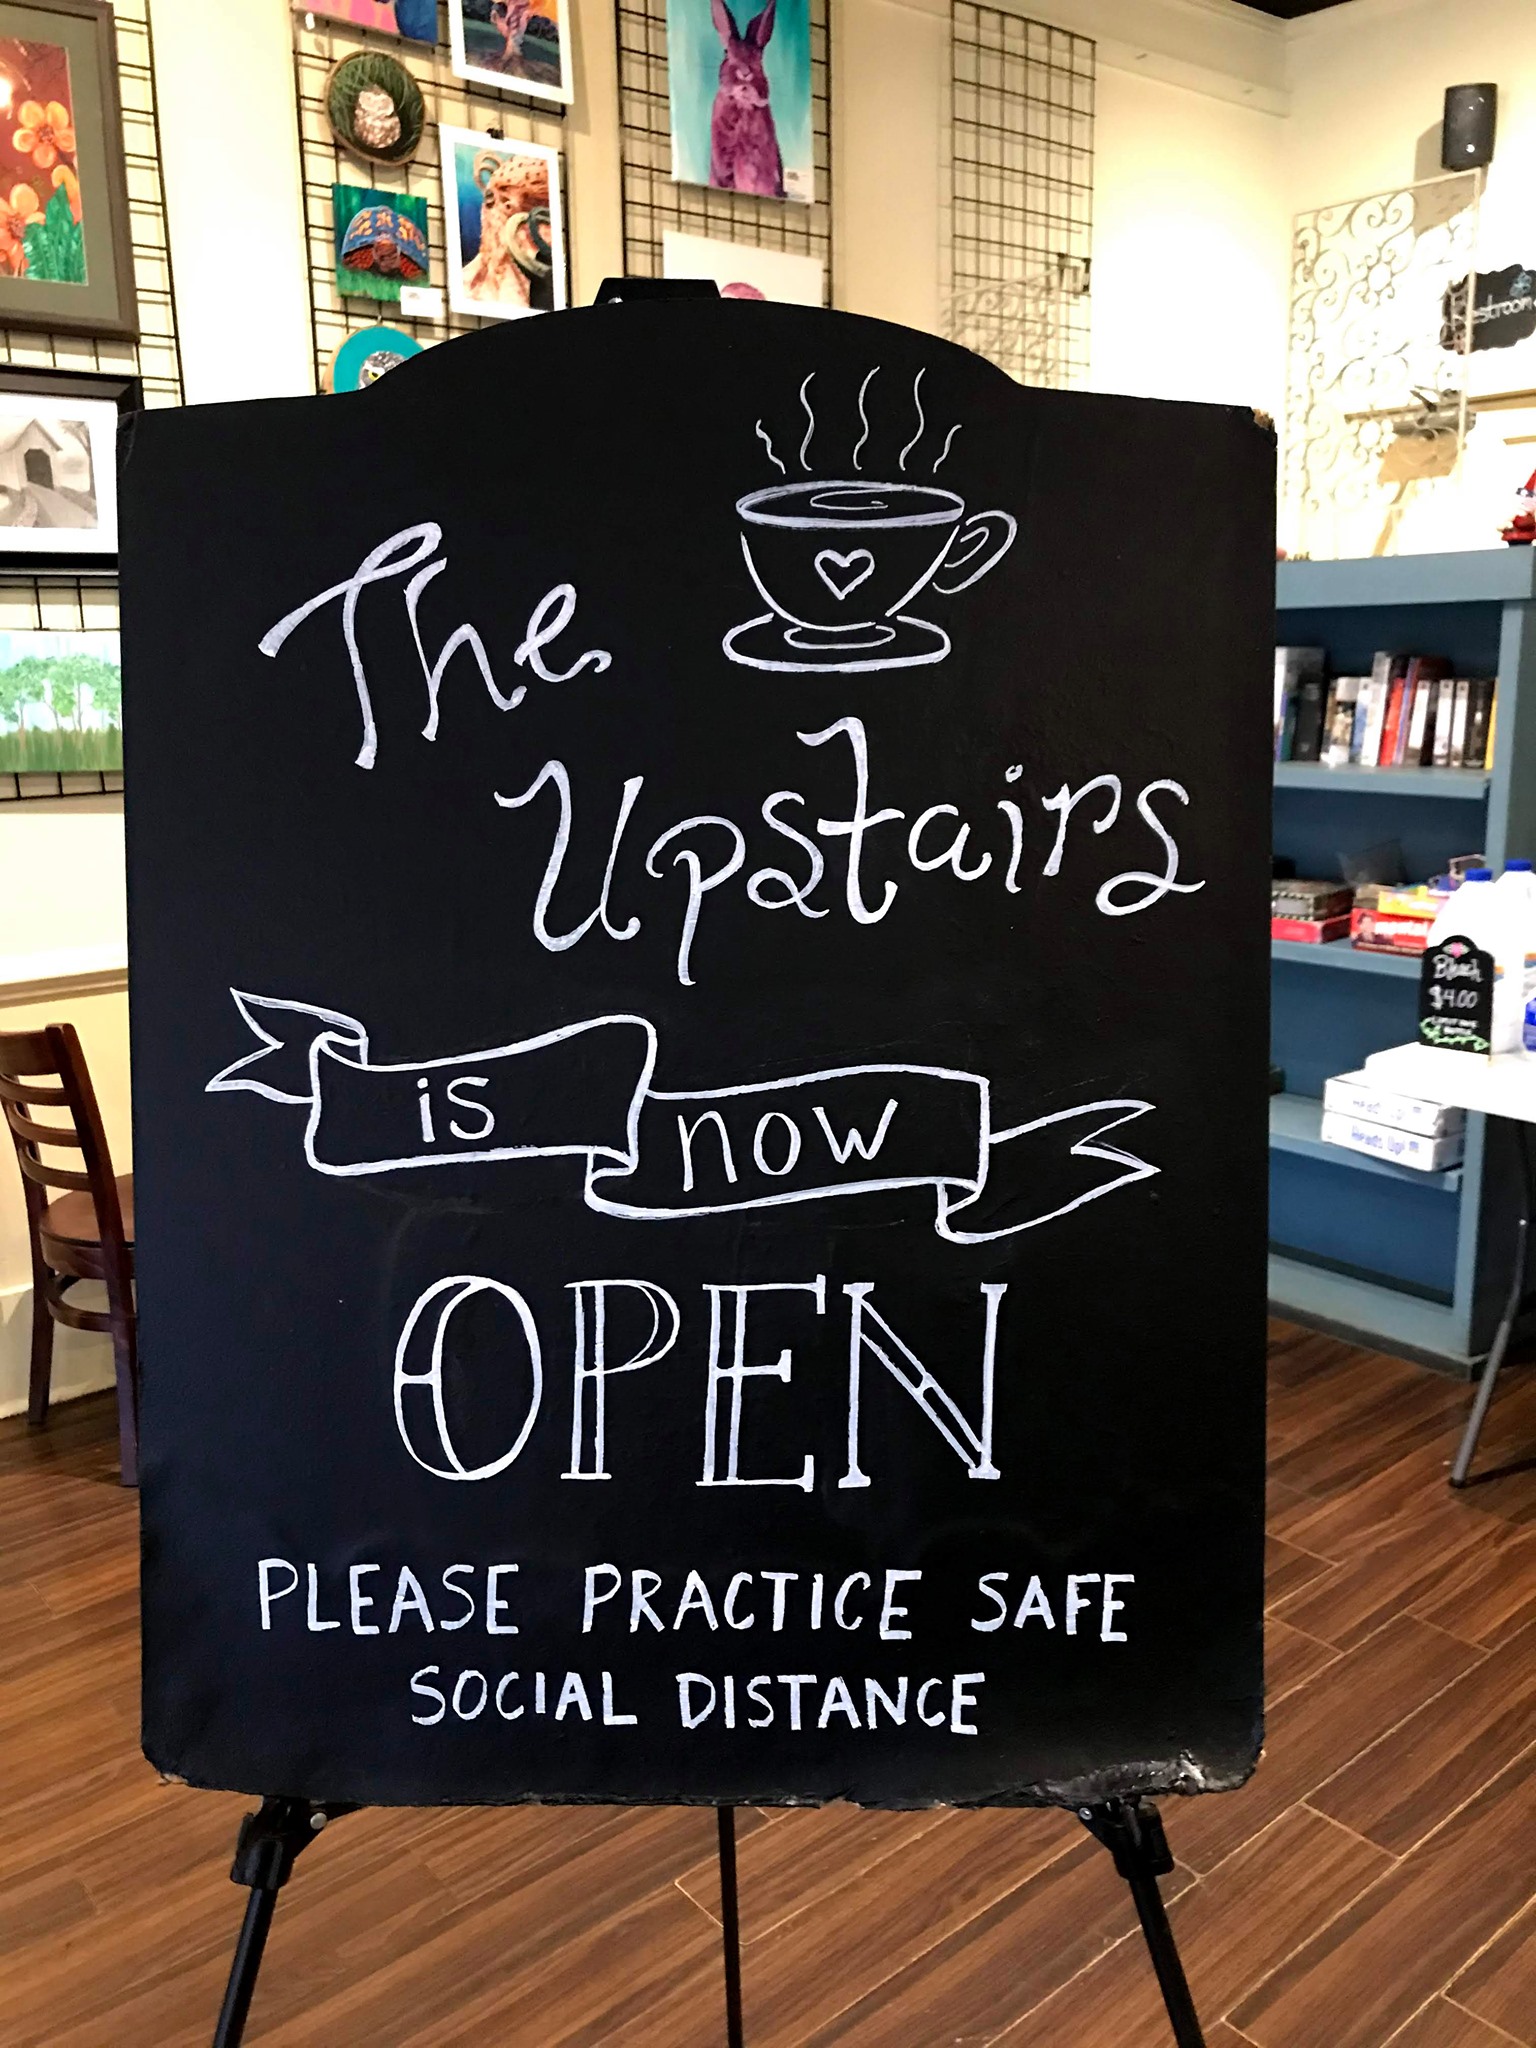 The
Upstairs
is now
OPEN
PLEASE PRACTICE SAFE
SOCIAL DISTANCE
Restroom
Bleach
$4.00
Heads Up!
Heads Up!